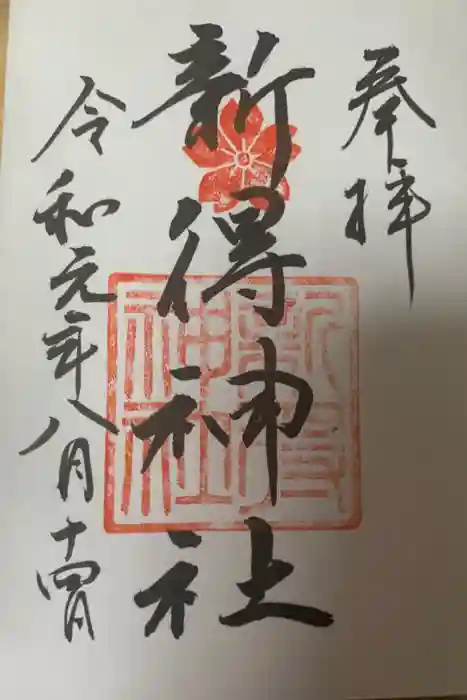 奉拝
新得神社
新得神社
令和元年八月十四日